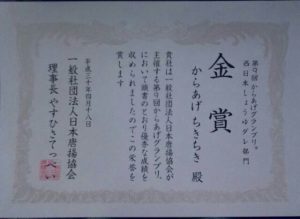 第9回からあげグランプリ®
西日本しょうゆダレ部門
金賞
からあげ ちきちき 殿
貴社は一般社団法人日本唐揚協会が
主催する第9回からあげグランプリ®
において頭書のとおり優秀な成績を
収められましたのでこの栄誉を
賞します
平成三十年四月十八日
一般社団法人日本唐揚協会
理事長 やすひさてっぺい